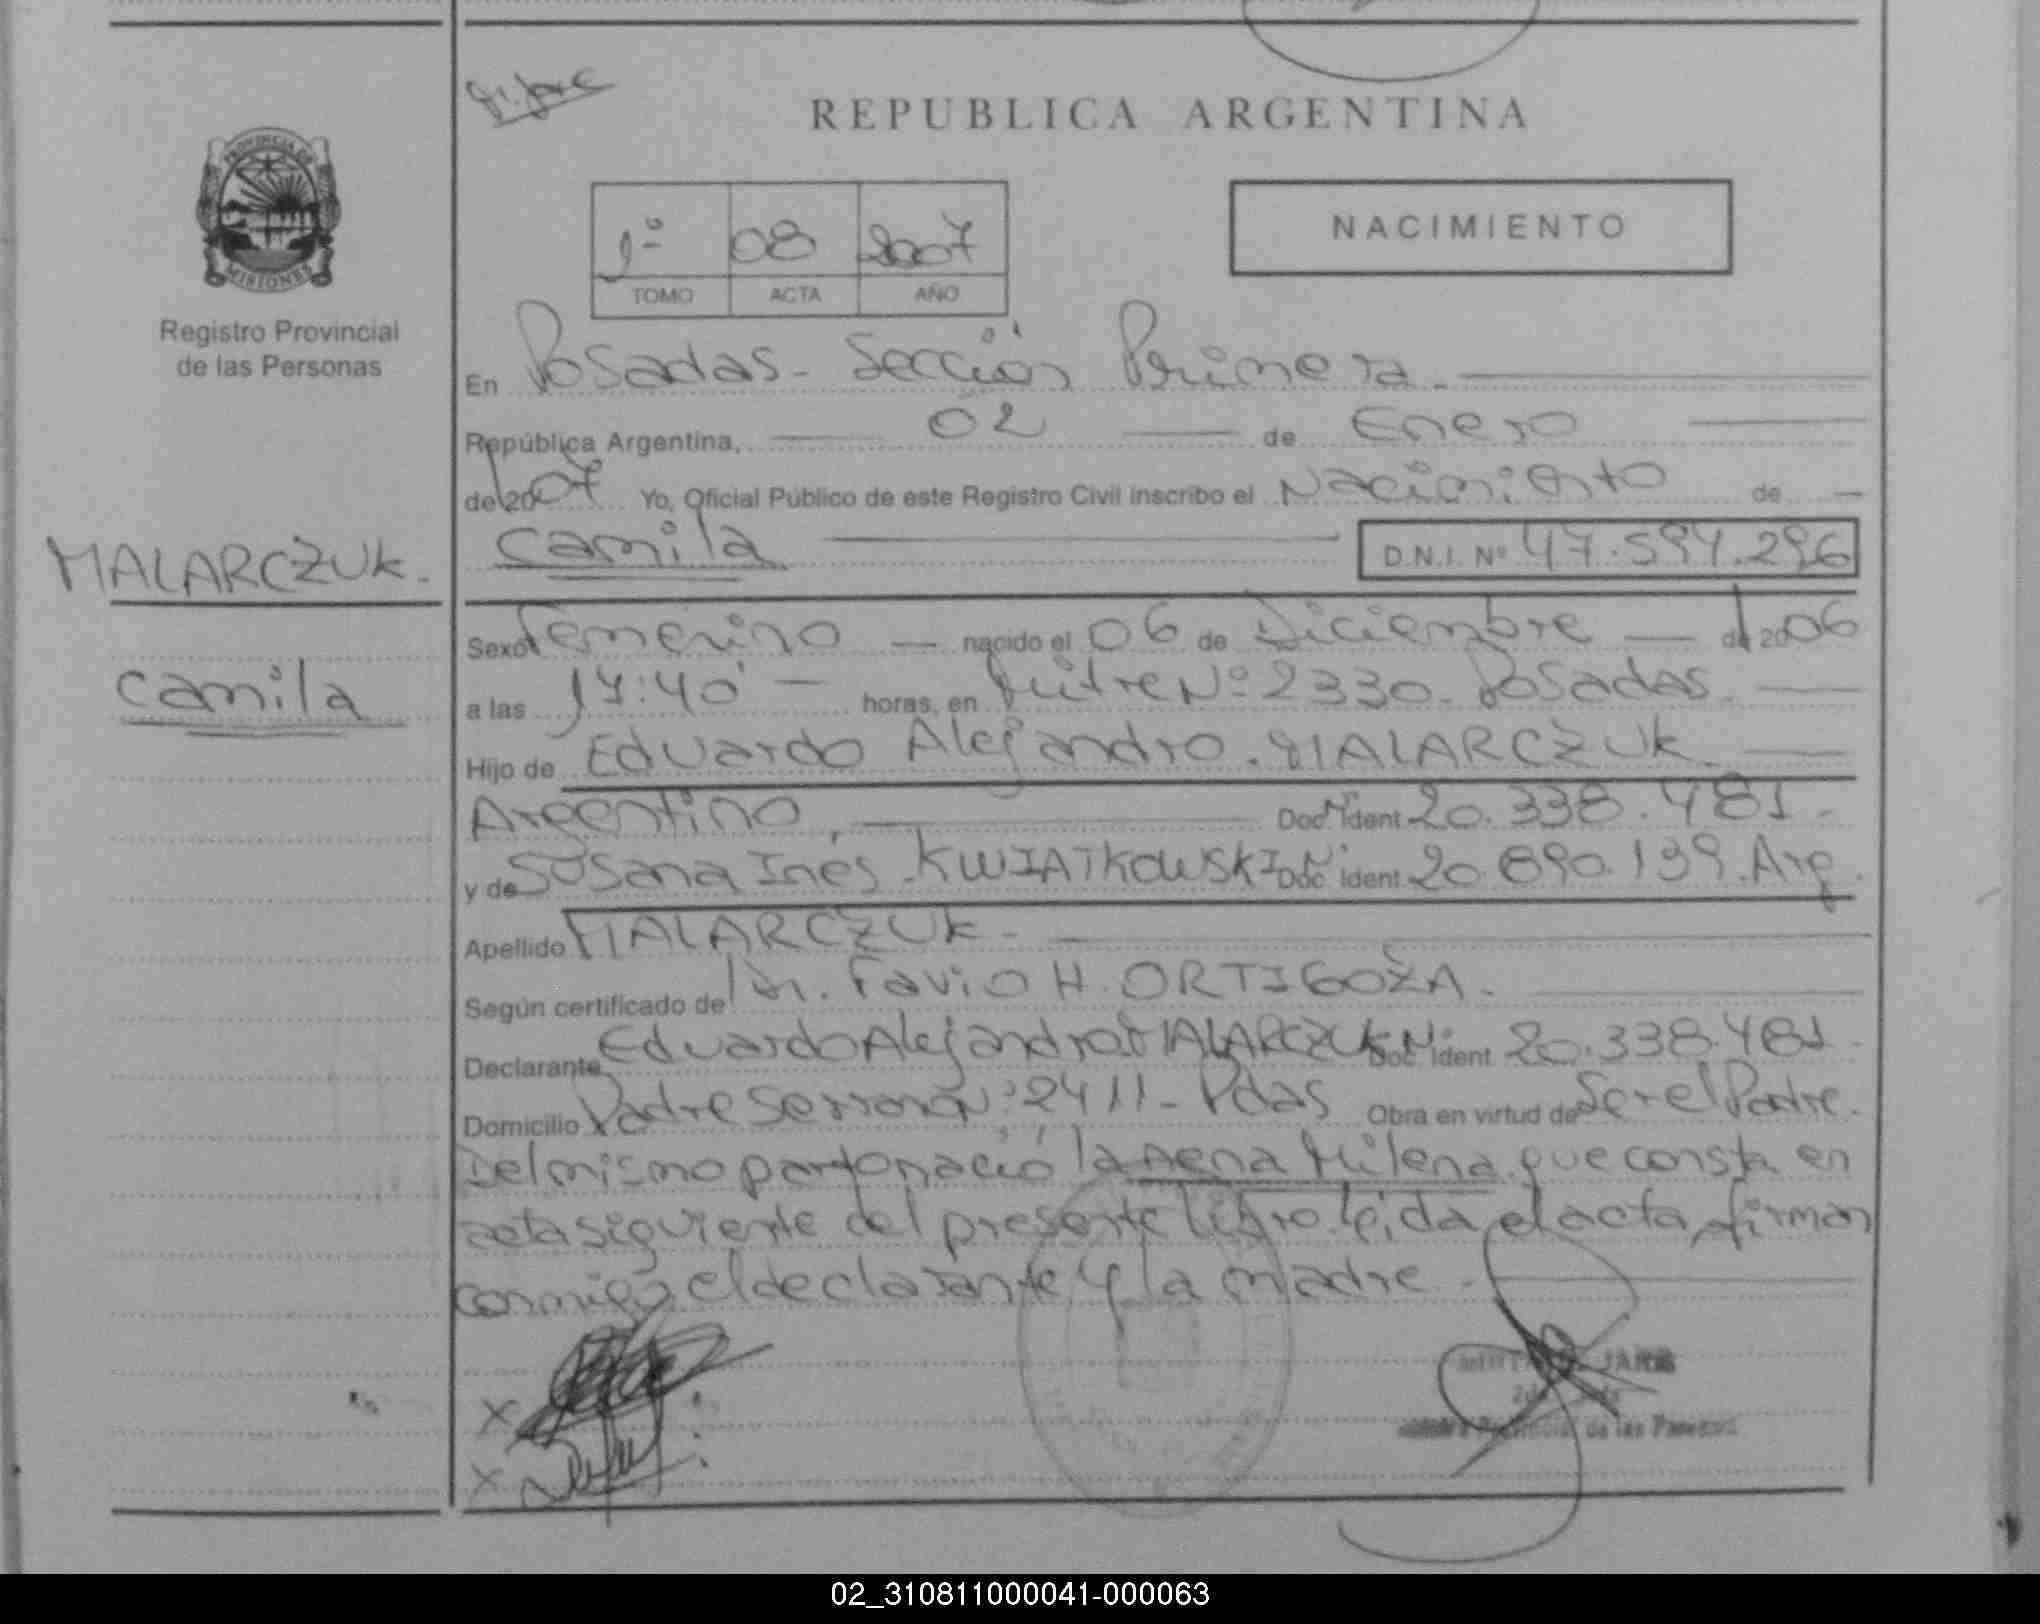 REPUBLICA ARGENTINA
PROVINCIA DE
MISIONES
Registro Provincial
de las Personas
1º 08 2007
TOMO ACTA AÑO
NACIMIENTO
En Posadas - Sección Primera.
República Argentina, 02 de Enero
de 2007 Yo, Oficial Público de este Registro Civil inscribo el Nacimiento de
MALARCZUK.
Camila D.N.I. Nº 47.594.296
Sexo Femenino nacido el 06 de Diciembre de 2006
Camila
a las 17:40 horas, en Mitre Nº 2330. Posadas.
Hijo de Eduardo Alejandro. MALARCZUK.
Argentino, Doc. Ident 20.338.481.
y de Susana Inés. KWIATKOWSKI Doc. Ident. 20.690.139. Arg.
Apellido MALARCZUK.
Según certificado de Dr. Favio H. ORTIGOZA.
Declarante Eduardo Alejandro MALARCZUK Doc. Ident. 20.338.481.
Domicilio Padre Serrano Nº 2411 - Pdas Obra en virtud de Ser el Padre.
Del mismo parto nació la nena Milena. que consta en
acta siguiente del presente libro. leída el acta, firman
conmigo el declarante y la madre.
X
X
JARA
Provincial de las Personas
02_310811000041-000063